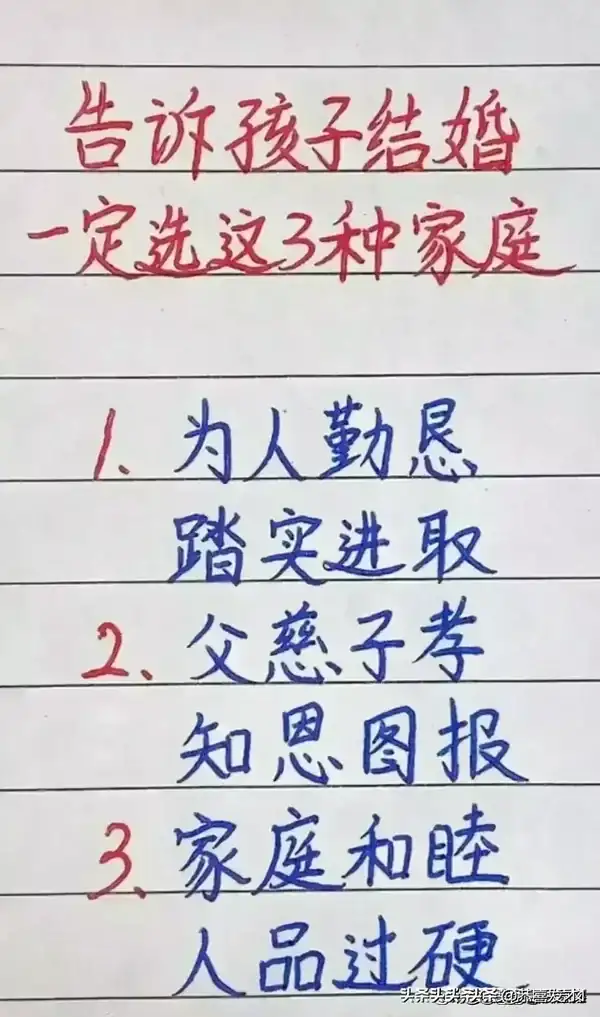 告诉孩子结婚
一定选这3种家庭
1、为人勤恳
踏实进取
2、父慈子孝
知恩图报
3、家庭和睦
人品过硬